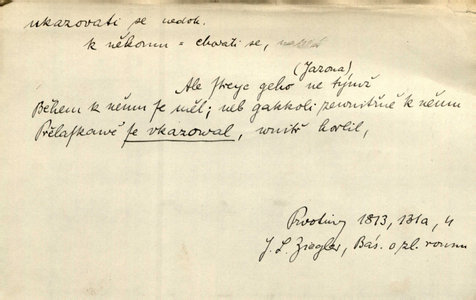 ukazovati se nedok.
k někomu = chovati se,
(Jazona)
Ale Streyc geho ne týmž
Během k němu se měl; neb gakkoli zewnitřně k němu
Přelaskawě se vkazowal, wnitř horlil,
Prvotiny 1813, 131a, 4
J. L. Ziegler, Bás. o zl. rounu